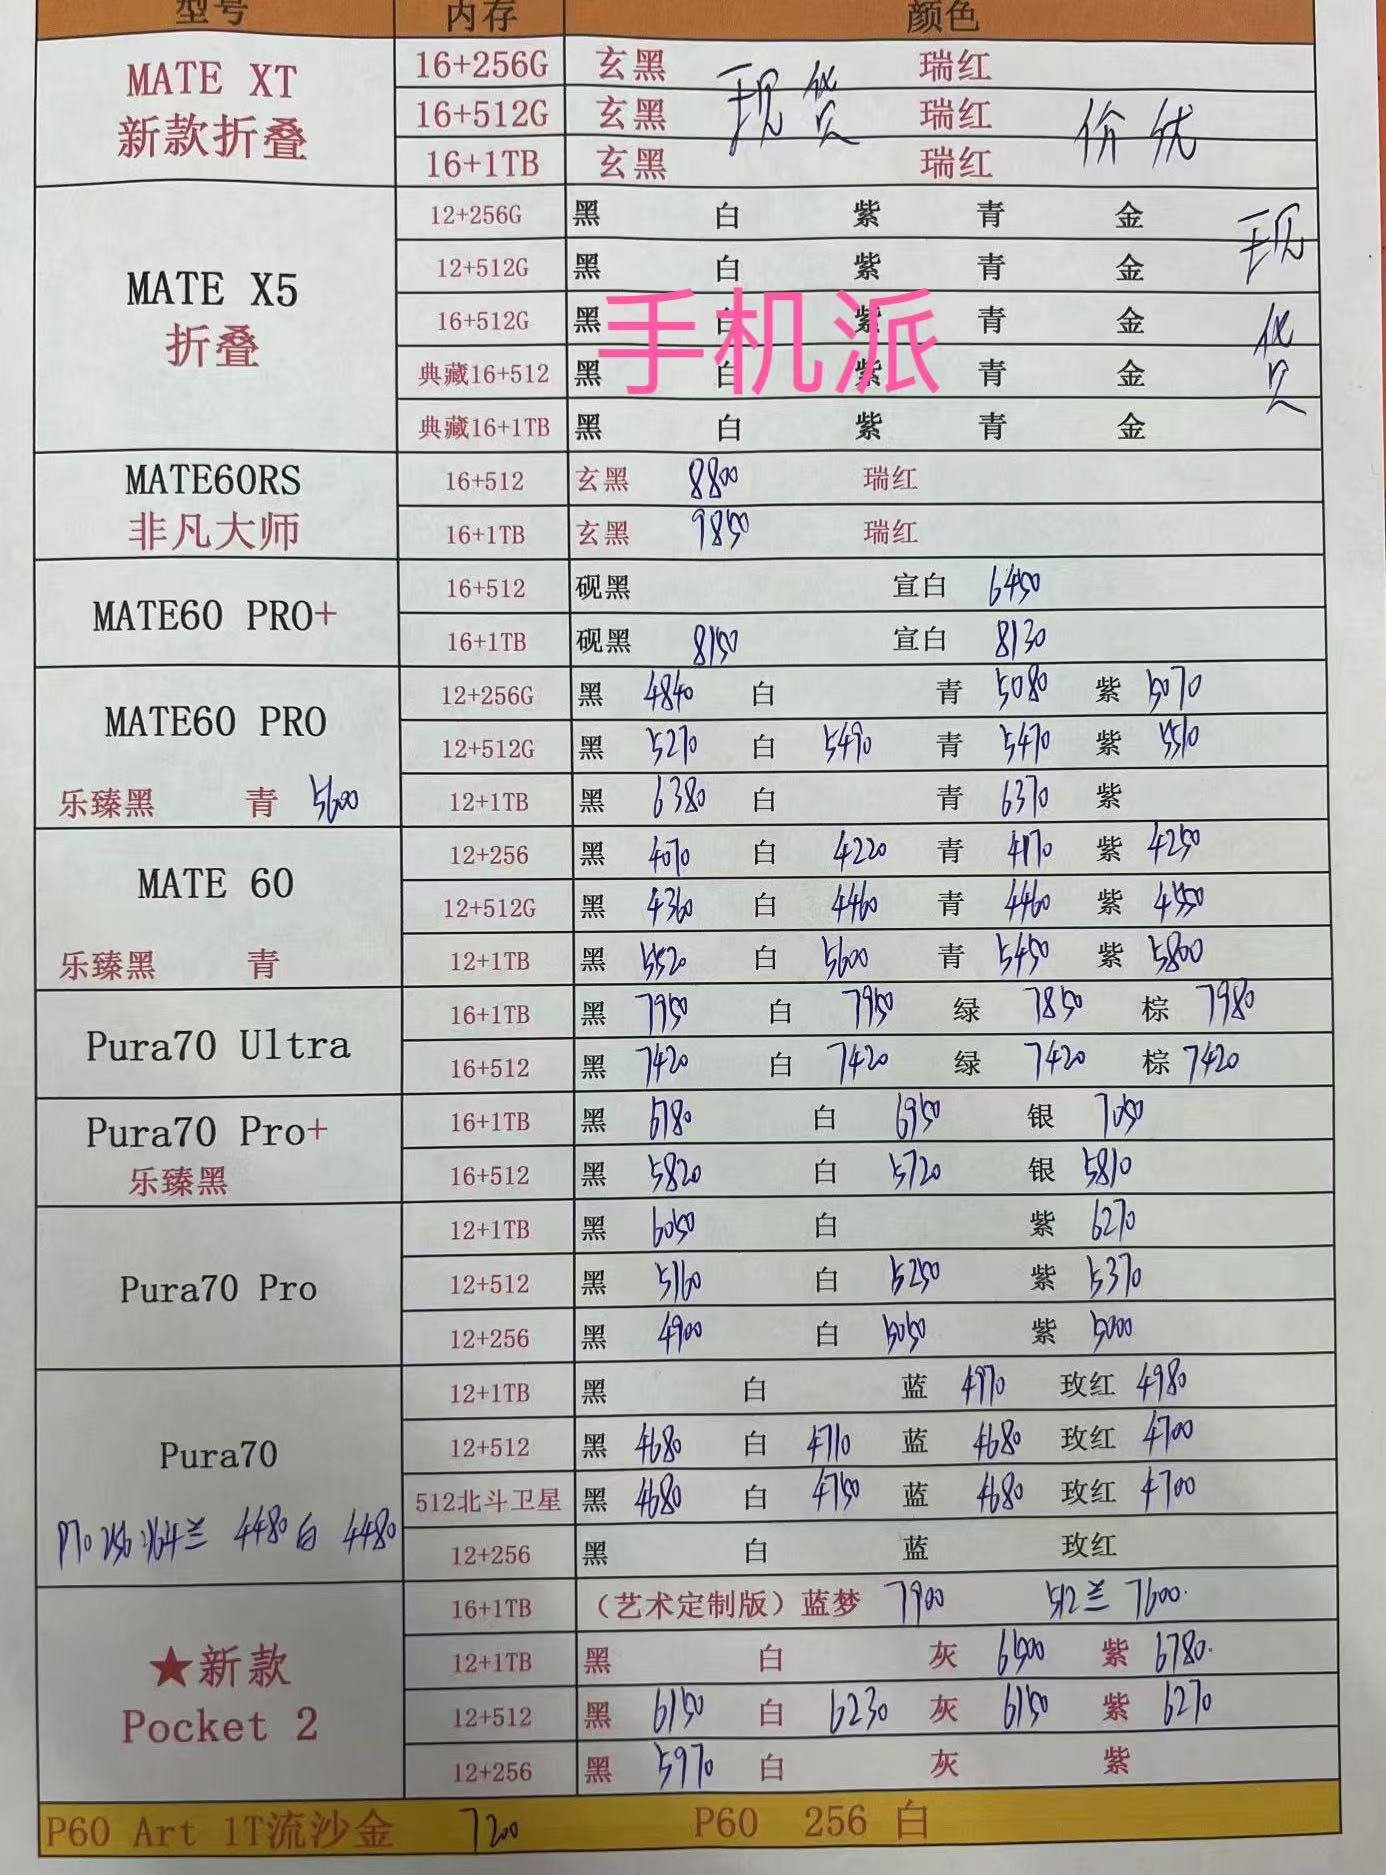 型号 内存 颜色
MATE XT
新款折叠
16+256G 玄黑 瑞红
16+512G 玄黑 瑞红
16+1TB 玄黑 瑞红
现货 价优
MATE X5
折叠
12+256G 黑 白 紫 青 金
12+512G 黑 白 紫 青 金
16+512G 黑 白 紫 青 金
典藏16+512 黑 白 紫 青 金
典藏16+1TB 黑 白 紫 青 金
现货
手机派
MATE60RS
非凡大师
16+512 玄黑 8800 瑞红
16+1TB 玄黑 9850 瑞红
MATE60 PRO+
16+512 砚黑 宣白 6450
16+1TB 砚黑 8150 宣白 8130
MATE60 PRO
乐臻黑 青 5600
12+256G 黑 4840 白 青 5080 紫 5070
12+512G 黑 5270 白 5490 青 5470 紫 5510
12+1TB 黑 6380 白 青 6370 紫
MATE 60
乐臻黑 青
12+256 黑 4070 白 4220 青 4170 紫 4250
12+512G 黑 4360 白 4460 青 4460 紫 4550
12+1TB 黑 5520 白 5600 青 5450 紫 5800
Pura70 Ultra
16+1TB 黑 7950 白 7950 绿 7850 棕 7980
16+512 黑 7420 白 7420 绿 7420 棕 7420
Pura70 Pro+
乐臻黑
16+1TB 黑 6780 白 6950 银 7050
16+512 黑 5820 白 5720 银 5810
Pura70 Pro
12+1TB 黑 6050 白 紫 6270
12+512 黑 5160 白 5250 紫 5370
12+256 黑 4900 白 5050 紫 5000
Pura70
12+1TB 黑 白 蓝 4970 玫红 4980
12+512 黑 4680 白 4710 蓝 4680 玫红 4700
512北斗卫星 黑 4680 白 4750 蓝 4680 玫红 4700
12+256 黑 白 蓝 玫红
P70 256 兰 4480 白 4480
★新款
Pocket 2
16+1TB （艺术定制版）蓝梦 7900 512兰 7600
12+1TB 黑 白 灰 6500 紫 6780
12+512 黑 6150 白 6230 灰 6150 紫 6270
12+256 黑 5970 白 灰 紫
P60 Art 1T流沙金 7200 P60 256 白